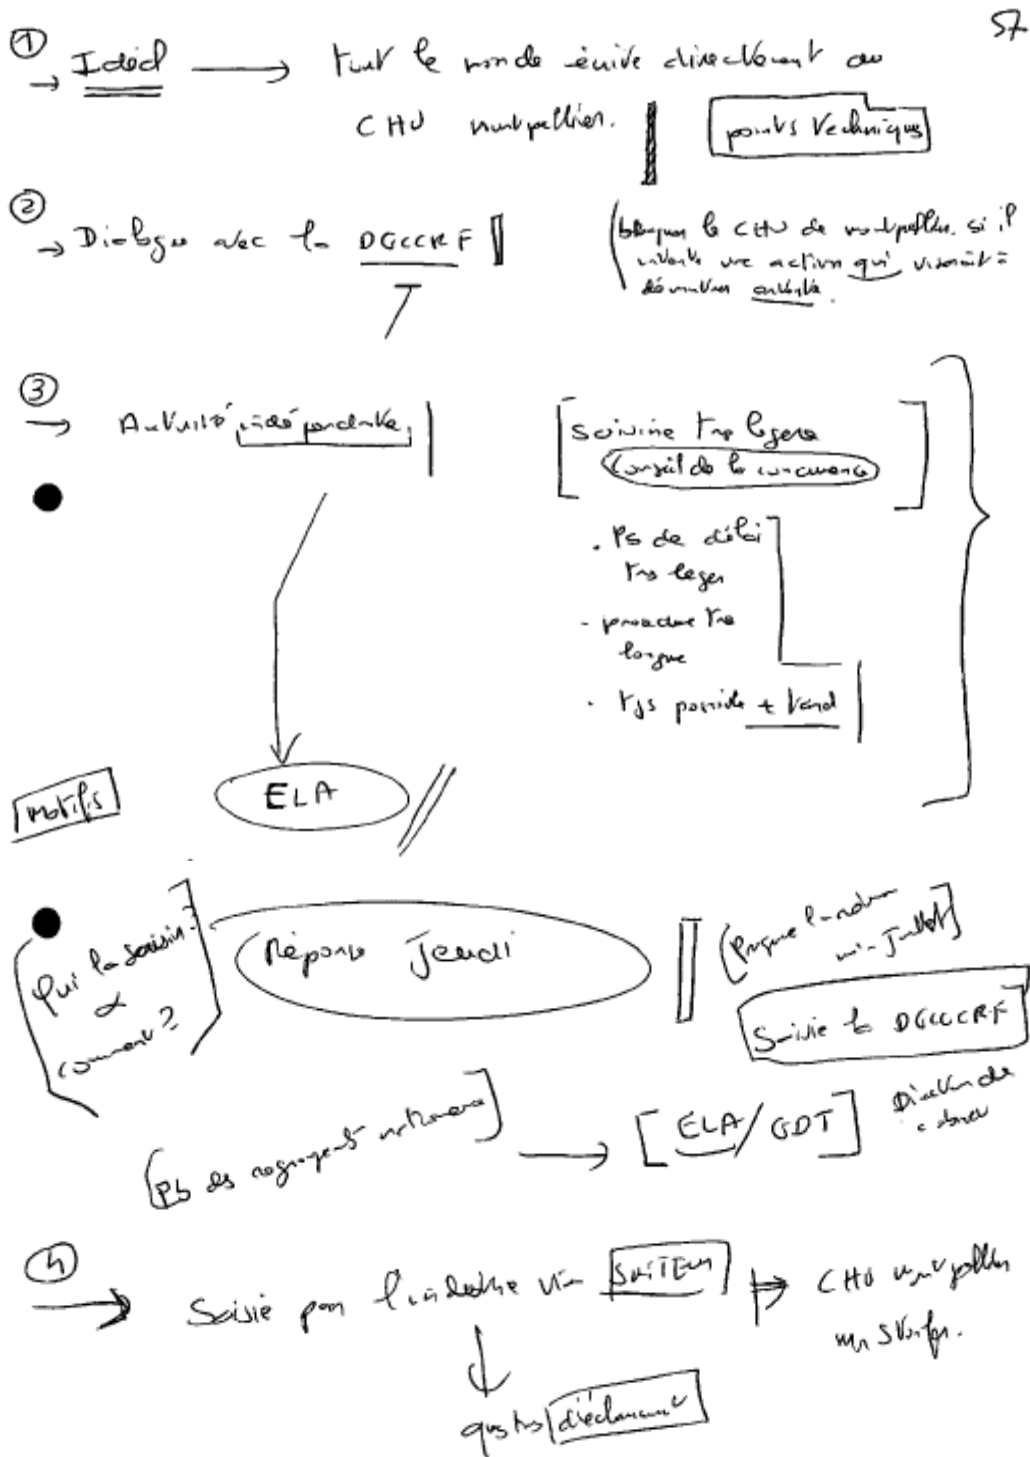 57
① → Idéal → tout le monde écrive directement au
CHU montpellier.
points techniques
② → Dialogue avec la DGCCRF
bloquer le CHU de montpellier si il
intente une action qui viserait à
démontrer entente.
③ → Autorité indépendante
Saisine tre legere
Conseil de la concurrence
. Ps de délai
tre leger
- procedure tre
longue
. tjs possible + tard
ELA
motifs
Qui la saisir?
&
comment?
Réponse Jeudi
mi-Juillet
Saisie la DGCCRF
Pb des
[ELA/GDT]
Direction de
④ → Saisie par l'industrie via
CHU montpellier